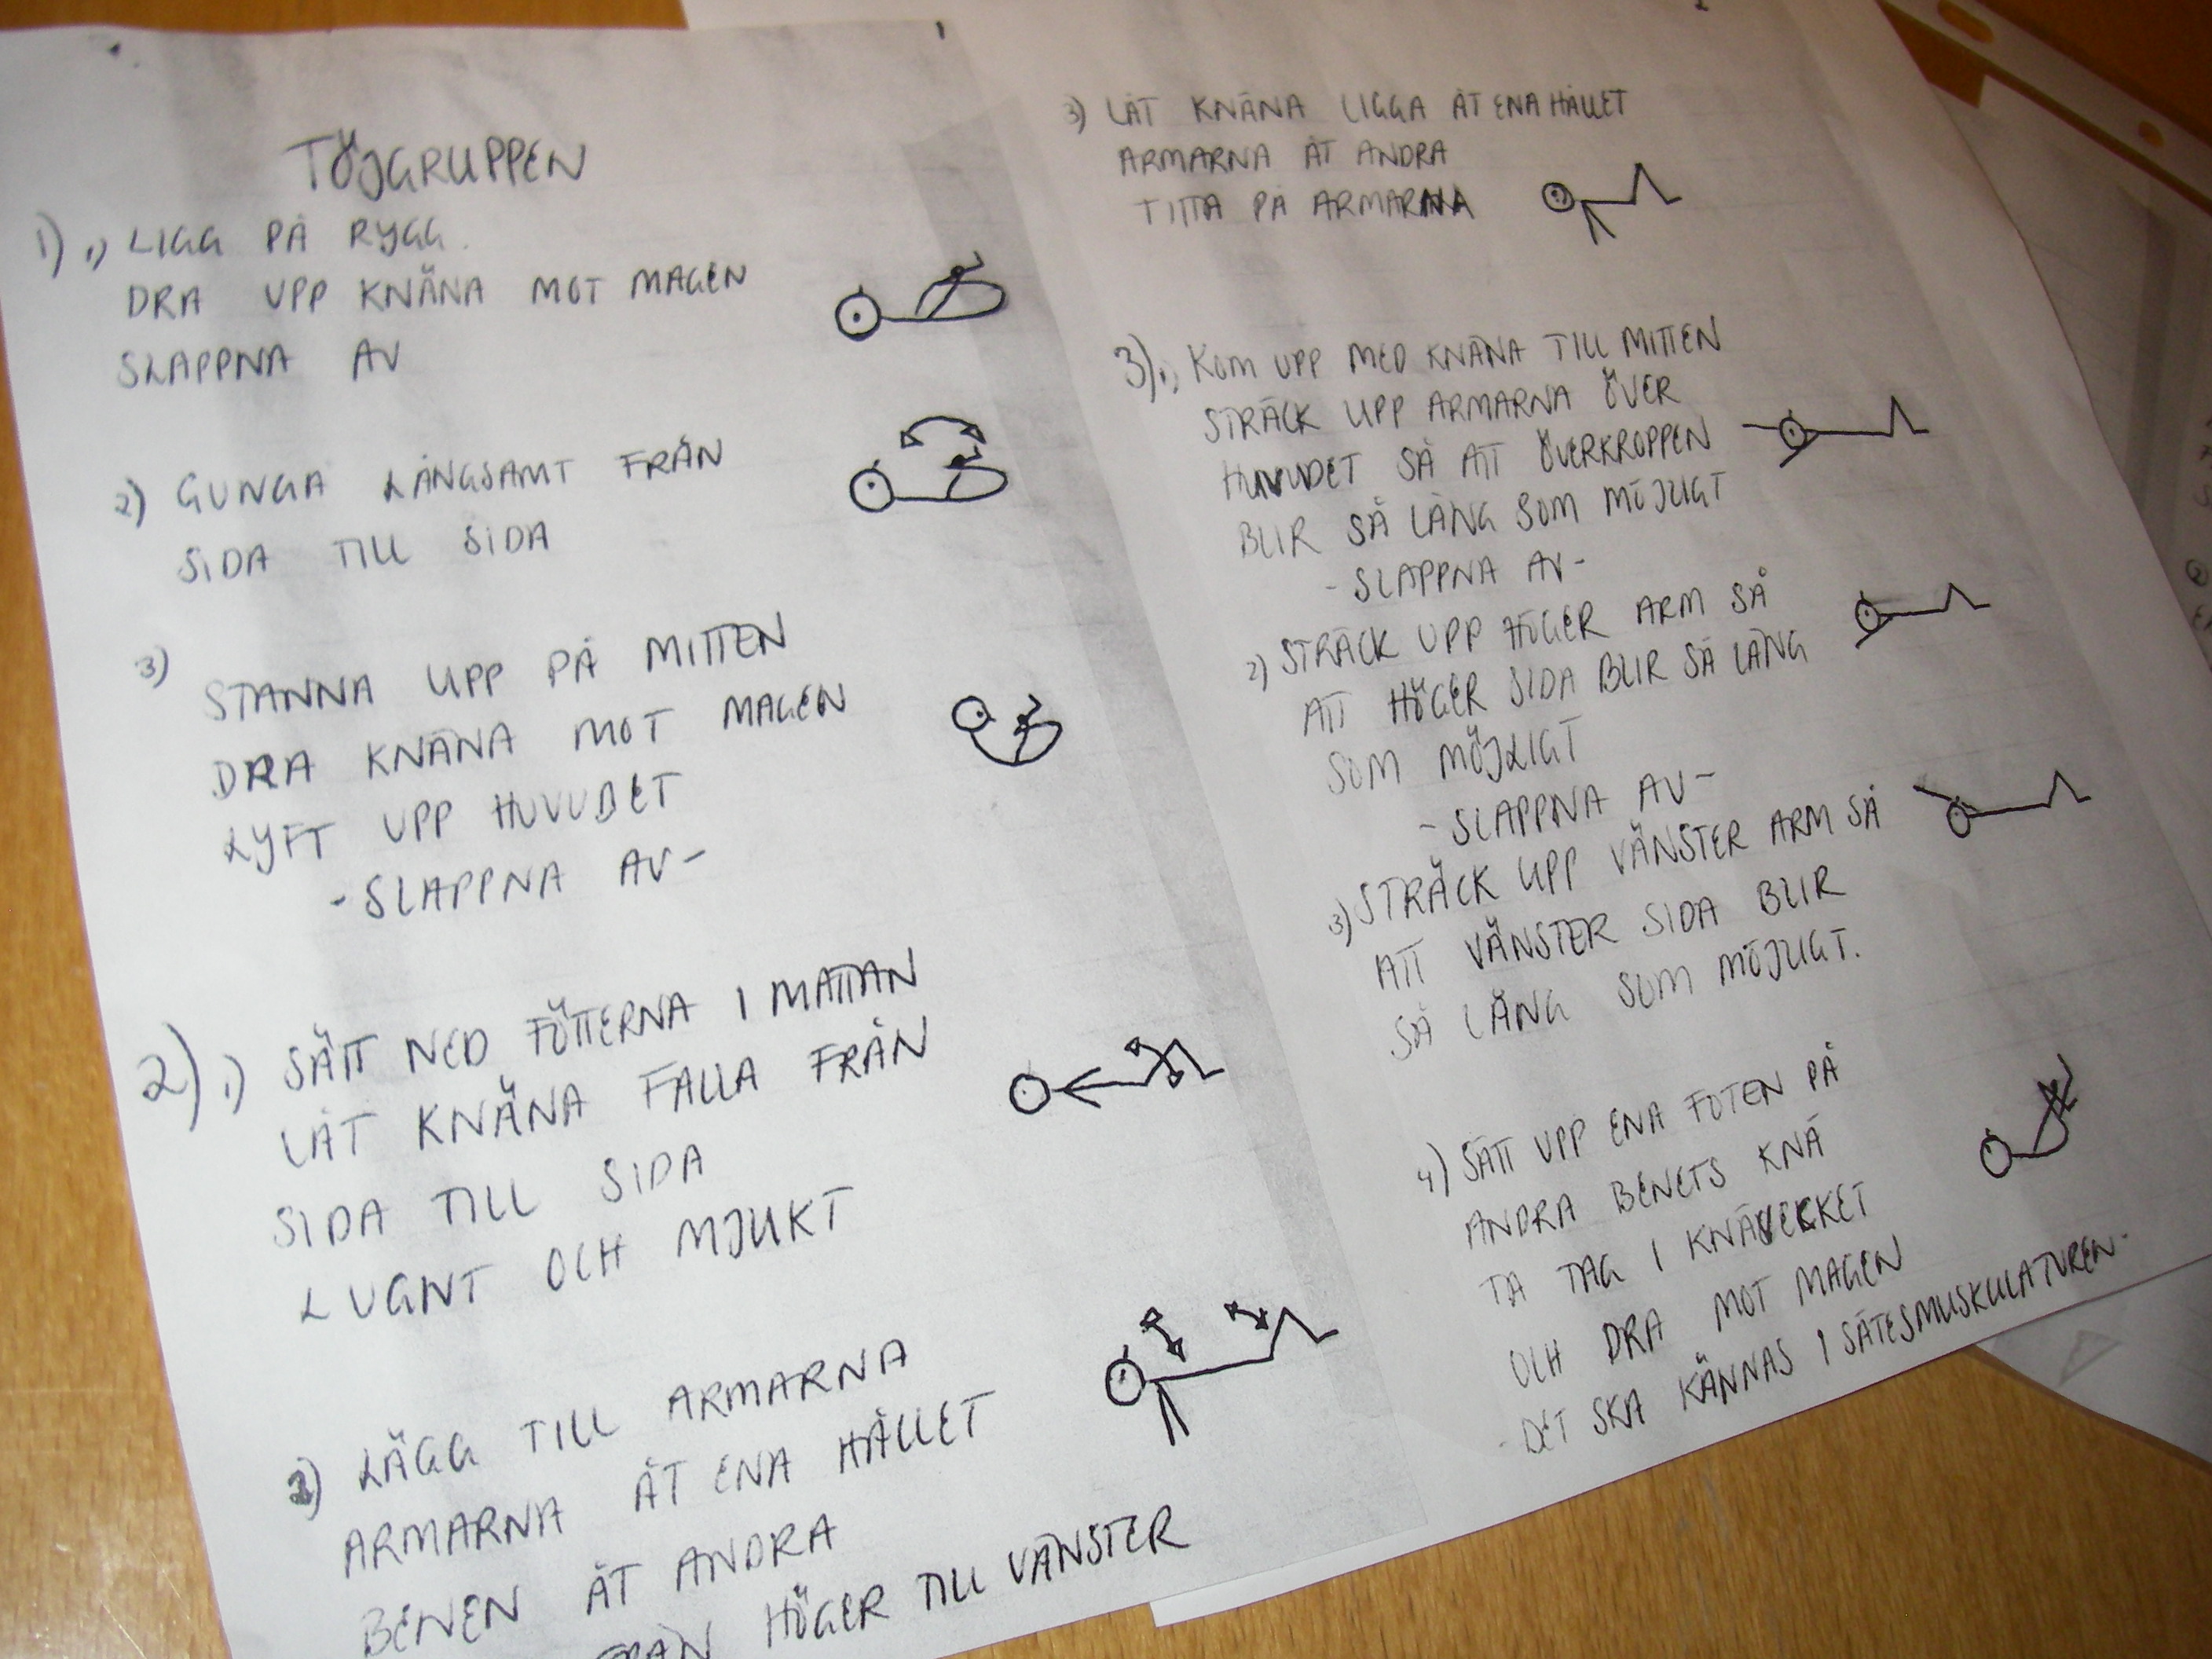 TÖJGRUPPEN
1) 1) LIGG PÅ RYGG.
DRA UPP KNÄNA MOT MAGEN
SLAPPNA AV
2) GUNGA LÅNGSAMT FRÅN
SIDA TILL SIDA
3) STANNA UPP PÅ MITTEN
DRA KNÄNA MOT MAGEN
LYFT UPP HUVUDET
- SLAPPNA AV -
2) 1) SÄTT NED FÖTTERNA I MATTAN
LÅT KNÄNA FALLA FRÅN
SIDA TILL SIDA
LUGNT OCH MJUKT
2) LÄGG TILL ARMARNA
ARMARNA ÅT ENA HÅLLET
BENEN ÅT ANDRA
FRÅN HÖGER TILL VÄNSTER
3) LÅT KNÄNA LIGGA ÅT ENA HÅLLET
ARMARNA ÅT ANDRA
TITTA PÅ ARMARNA
3) 1) KOM UPP MED KNÄNA TILL MITTEN
STRÄCK UPP ARMARNA ÖVER
HUVUDET SÅ ATT ÖVERKROPPEN
BLIR SÅ LÅNG SOM MÖJLIGT
- SLAPPNA AV -
2) STRÄCK UPP HÖGER ARM SÅ
ATT HÖGER SIDA BLIR SÅ LÅNG
SOM MÖJLIGT
- SLAPPNA AV -
3) STRÄCK UPP VÄNSTER ARM SÅ
ATT VÄNSTER SIDA BLIR
SÅ LÅNG SOM MÖJLIGT.
4) SÄTT UPP ENA FOTEN PÅ
ANDRA BENETS KNÄ
TA TAG I KNÄVECKET
OCH DRA MOT MAGEN
- DET SKA KÄNNAS I SÄTESMUSKULATUREN -